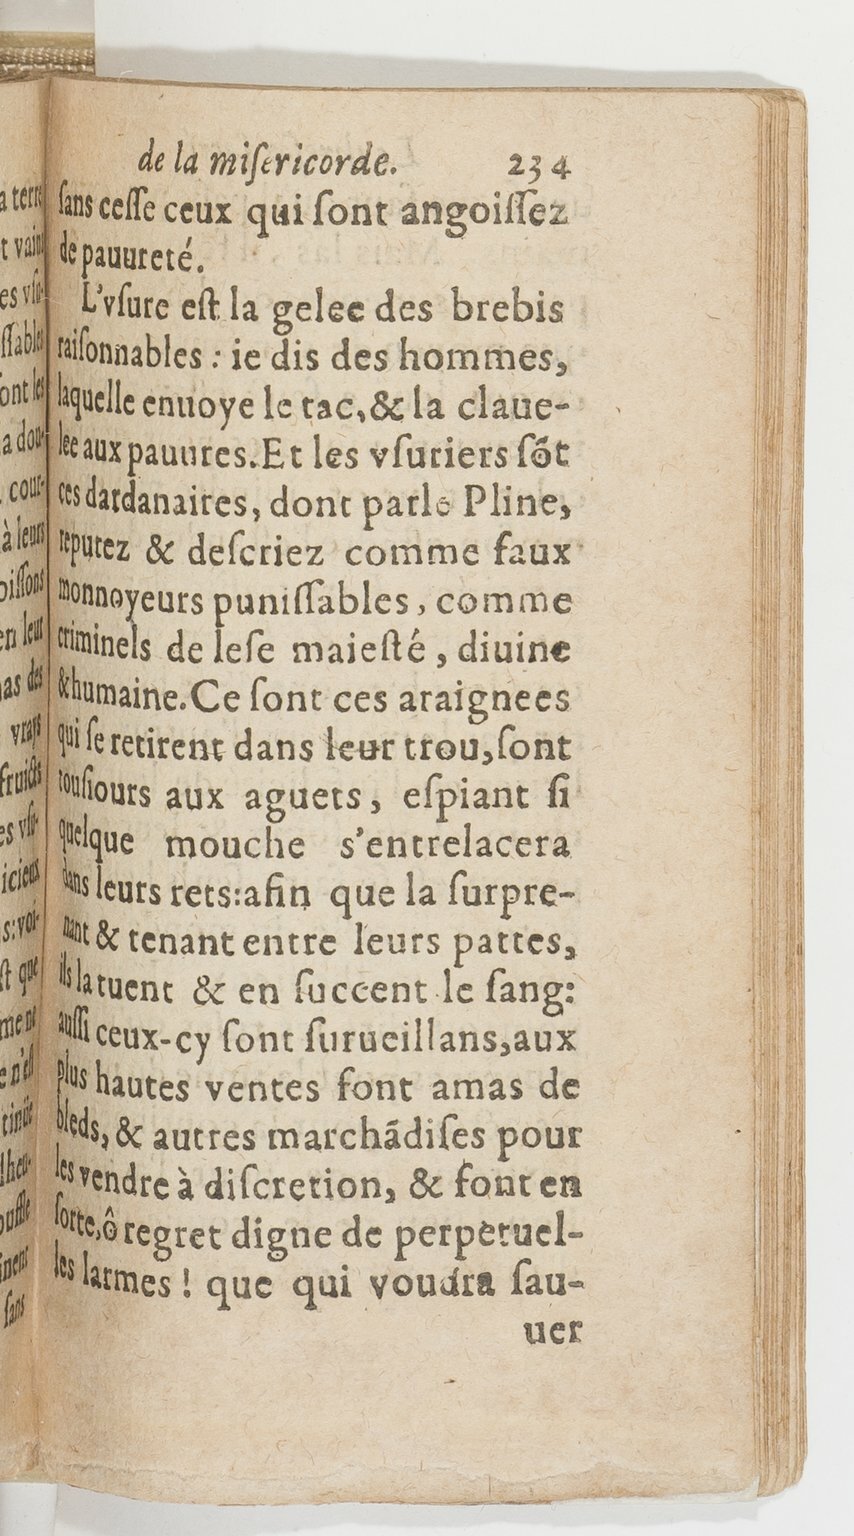 de la miſericorde. 234
ſans ceſſe ceux qui ſont angoiſſez
de pauureté.
L'vſure eſt la gelee des brebis
raiſonnables : ie dis des hommes,
laquelle enuoye le tac, & la claue-
lee aux pauures. Et les vſuriers ſõt
ces dardanaires, dont parle Pline,
reputez & deſcriez comme faux
monnoyeurs puniſſables, comme
criminels de leſe maieſté, diuine
& humaine. Ce ſont ces araignees
qui ſe retirent dans leur trou, ſont
touſiours aux aguets, eſpiant ſi
quelque mouche s'entrelacera
dans leurs rets: afin que la ſurpre-
nant & tenant entre leurs pattes,
ils la tuent & en ſuccent le ſang:
auſſi ceux-cy ſont ſurueillans, aux
plus hautes ventes font amas de
bleds, & autres marchãdiſes pour
les vendre à diſcretion, & font en
ſorte, ô regret digne de perpetuel-
les larmes ! que qui voudra ſau-
uer